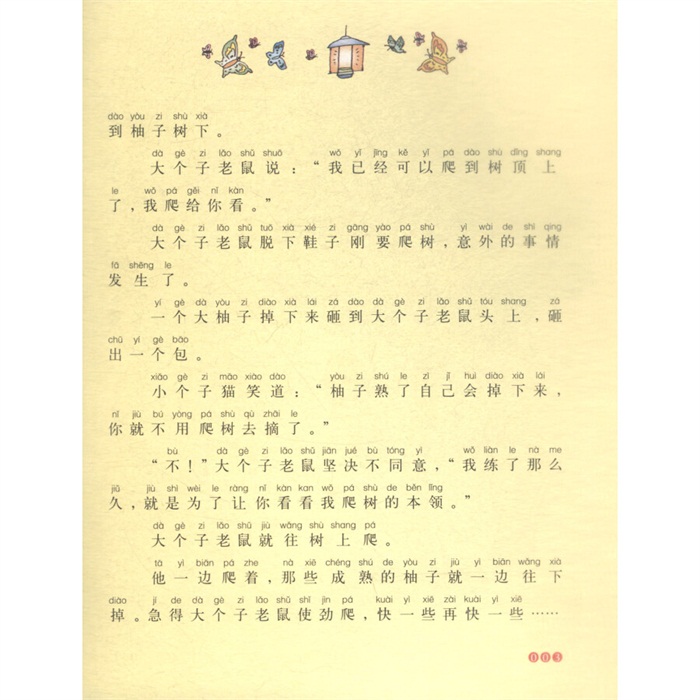 dào yòu zi shù xià
到柚子树下。
dà gè zi lǎo shǔ shuō wǒ yǐ jīng kě yǐ pá dào shù dǐng shang
大个子老鼠说：“我已经可以爬到树顶上
le wǒ pá gěi nǐ kàn
了，我爬给你看。”
dà gè zi lǎo shǔ tuō xià xié zi gāng yào pá shù yì wài de shì qing
大个子老鼠脱下鞋子刚要爬树，意外的事情
fā shēng le
发生了。
yí gè dà yòu zi diào xià lái zá dào dà gè zi lǎo shǔ tóu shang zá
一个大柚子掉下来砸到大个子老鼠头上，砸
chū yí gè bāo
出一个包。
xiǎo gè zi māo xiào dào yòu zi shú le zì jǐ huì diào xià lái
小个子猫笑道：“柚子熟了自己会掉下来，
nǐ jiù bú yòng pá shù qù zhāi le
你就不用爬树去摘了。”
bù dà gè zi lǎo shǔ jiān jué bù tóng yì wǒ liàn le nà me
“不！”大个子老鼠坚决不同意，“我练了那么
jiǔ jiù shì wèi le ràng nǐ kàn kan wǒ pá shù de běn lǐng
久，就是为了让你看看我爬树的本领。”
dà gè zi lǎo shǔ jiù wǎng shù shang pá
大个子老鼠就往树上爬。
tā yì biān pá zhe nà xiē chéng shú de yòu zi jiù yì biān wǎng xià
他一边爬着，那些成熟的柚子就一边往下
diào jí de dà gè zi lǎo shǔ shǐ jìn pá kuài yì xiē zài kuài yì xiē
掉。急得大个子老鼠使劲爬，快一些再快一些……
003